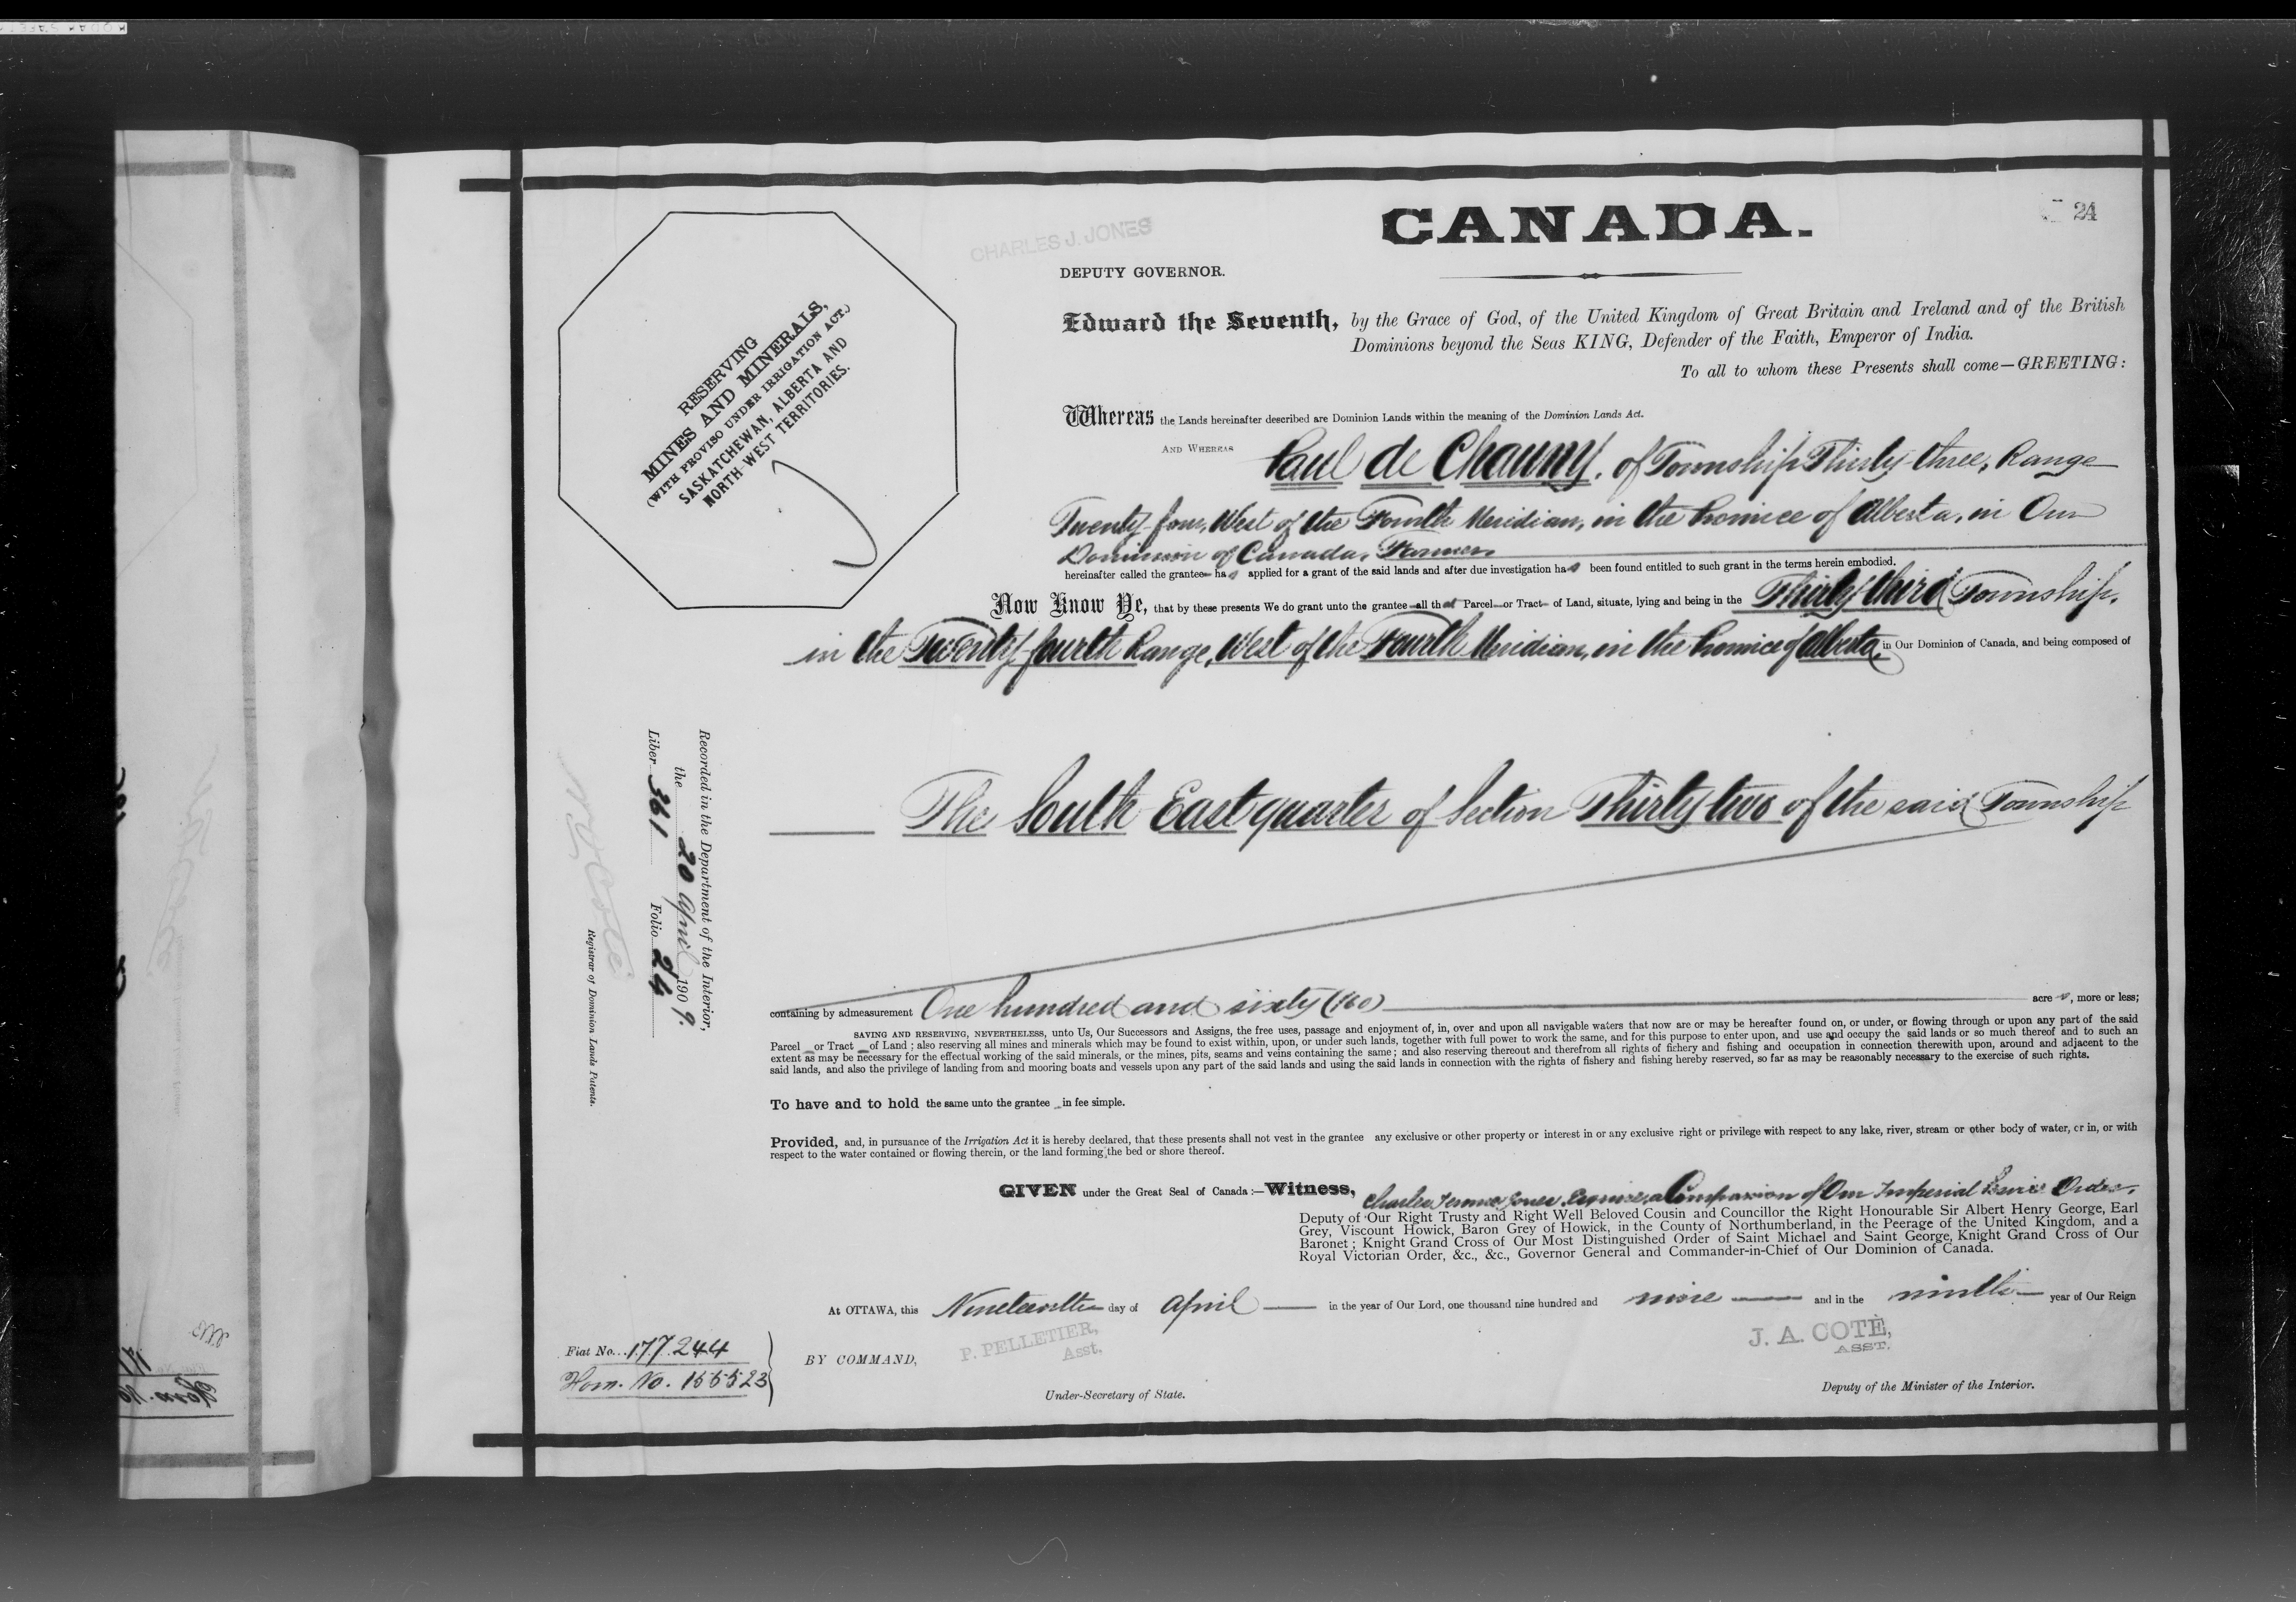 24
CHARLES J. JONES
CANADA.
DEPUTY GOVERNOR.
Edward the Seventh, by the Grace of God, of the United Kingdom of Great Britain and Ireland and of the British
Dominions beyond the Seas KING, Defender of the Faith, Emperor of India.
To all to whom these Presents shall come—GREETING:
RESERVING
MINES AND MINERALS,
(WITH PROVISO UNDER IRRIGATION ACT.)
SASKATCHEWAN, ALBERTA AND
NORTH-WEST TERRITORIES.
Whereas the Lands hereinafter described are Dominion Lands within the meaning of the Dominion Lands Act.
AND WHEREAS Paul de Chauny, of Township Thirty-three, Range
Twenty-four, West of the Fourth Meridian, in the Province of Alberta, in Our
Dominion of Canada, Farmer,
hereinafter called the grantee has applied for a grant of the said lands and after due investigation has been found entitled to such grant in the terms herein embodied.
Now Know Ye, that by these presents We do grant unto the grantee all that Parcel or Tract of Land, situate, lying and being in the Thirty-third Township,
in the Twenty-fourth Range, West of the Fourth Meridian, in the Province of Alberta, in Our Dominion of Canada, and being composed of
The South East quarter of Section Thirty-two of the said Township
containing by admeasurement One hundred and sixty (160) acres, more or less;
SAVING AND RESERVING, NEVERTHELESS, unto Us, Our Successors and Assigns, the free uses, passage and enjoyment of, in, over and upon all navigable waters that now are or may be hereafter found on, or under, or flowing through or upon any part of the said
Parcel or Tract of Land; also reserving all mines and minerals which may be found to exist within, upon, or under such lands, together with full power to work the same, and for this purpose to enter upon, and use and occupy the said lands or so much thereof and to such an
extent as may be necessary for the effectual working of the said minerals, or the mines, pits, seams and veins containing the same; and also reserving thereout and therefrom all rights of fishery and fishing and occupation in connection therewith upon, around and adjacent to the
said lands, and also the privilege of landing from and mooring boats and vessels upon any part of the said lands and using the said lands in connection with the rights of fishery and fishing hereby reserved, so far as may be reasonably necessary to the exercise of such rights.
To have and to hold the same unto the grantee in fee simple.
Provided, and, in pursuance of the Irrigation Act it is hereby declared, that these presents shall not vest in the grantee any exclusive or other property or interest in or any exclusive right or privilege with respect to any lake, river, stream or other body of water, or in, or with
respect to the water contained or flowing therein, or the land forming the bed or shore thereof.
GIVEN under the Great Seal of Canada:—Witness, Charles Jones, Esquire, a Companion of Our Imperial Service Order,
Deputy of Our Right Trusty and Right Well Beloved Cousin and Councillor the Right Honourable Sir Albert Henry George, Earl
Grey, Viscount Howick, Baron Grey of Howick, in the County of Northumberland, in the Peerage of the United Kingdom, and a
Baronet; Knight Grand Cross of Our Most Distinguished Order of Saint Michael and Saint George, Knight Grand Cross of Our
Royal Victorian Order, &c., &c., Governor General and Commander-in-Chief of Our Dominion of Canada.
At OTTAWA, this Nineteenth day of April in the year of Our Lord, one thousand nine hundred and nine and in the ninth year of Our Reign
BY COMMAND,
P. PELLETIER,
Asst,
Under-Secretary of State.
J. A. COTÈ,
ASST.
Deputy of the Minister of the Interior.
Fiat No. 177244
Hom. No. 155523
Recorded in the Department of the Interior,
the 20 April 1909.
Liber 361 Folio 24
N O Coté
Registrar of Dominion Lands Patents.